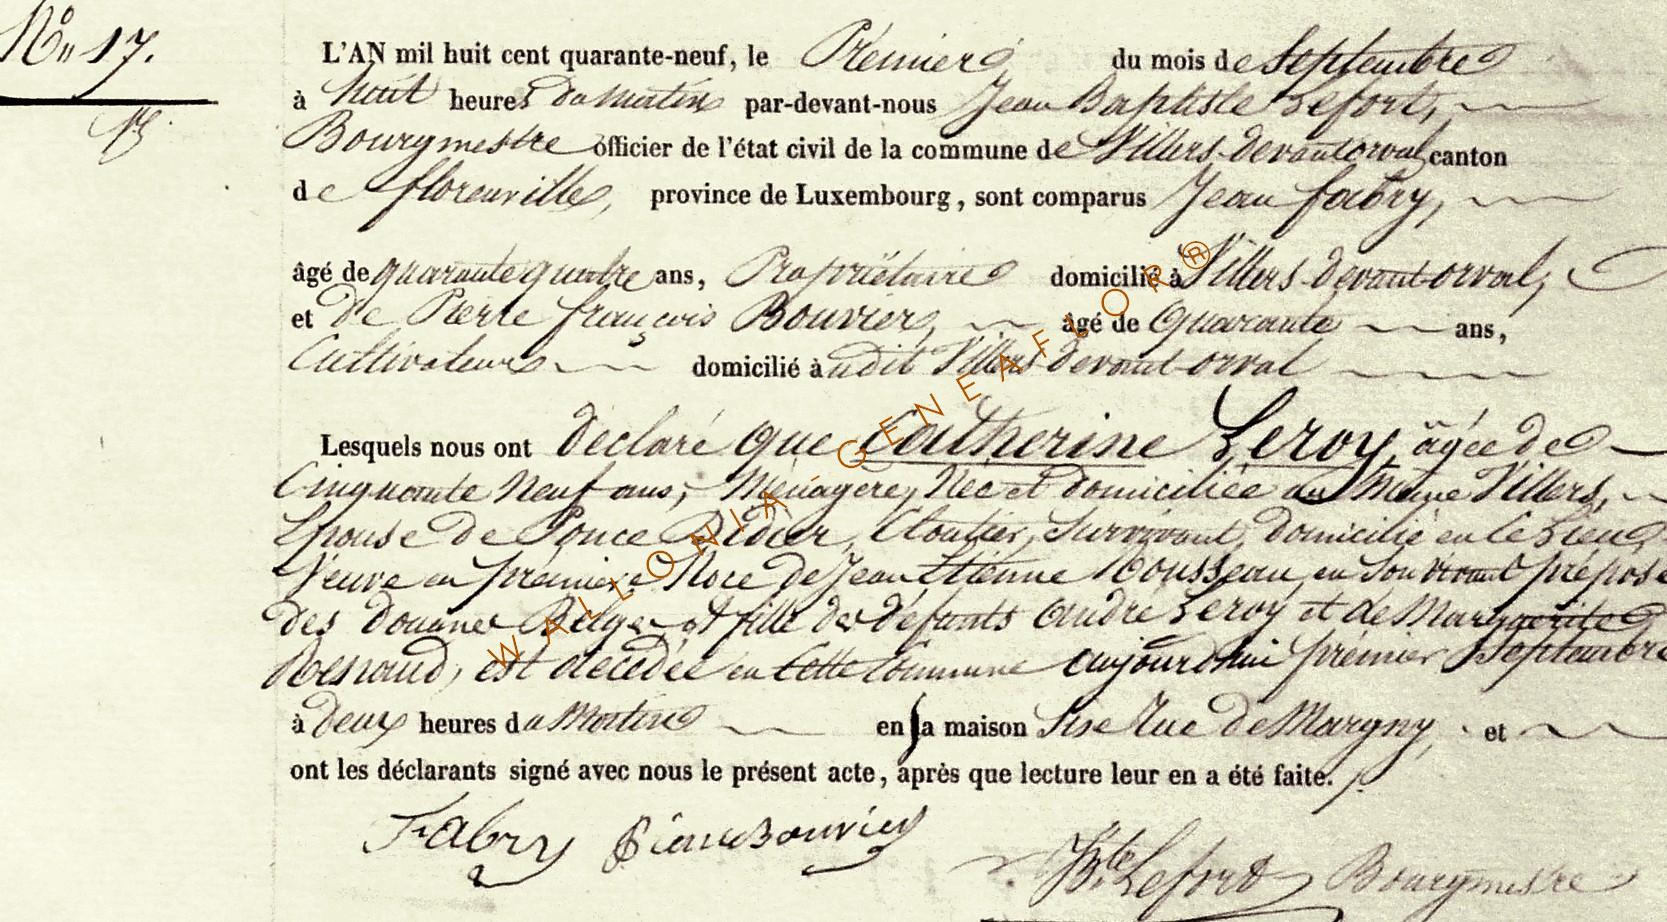 N° 17.
L'AN mil huit cent quarante-neuf, le Prémier du mois de Septembre
à huit heures du Matin par-devant-nous Jean Baptiste Lefort,
Bourgmestre officier de l'état civil de la commune de Villers-devant-orval canton
de florenville, province de Luxembourg, sont comparus Jean fabry,
âgé de quarante quatre ans, Propriétaire domicilié à Villers-devant-orval,
et de Pierre françois Bouvier, âgé de Quarante ans,
Cultivateur domicilié à udit Villers devant-orval
Lesquels nous ont déclaré que Catherine Leroy, âgée de
Cinquante Neuf ans, Ménagère, Née et domiciliée au Même Villers,
Epouse de Ponce Cloutier, Survivant, domicilié en ce Lieu,
Veuve en prémière Noce de Jean Etienne Rousseau, en Son vivant préposé
des Douanes Belges et fille des défunts André Leroy et de Marguerite
est décédée en Cette Commune aujourd'hui prémier Septembre
à deux heures du Matin en la maison Sise Rue de Margny, et
ont les déclarants signé avec nous le présent acte, après que lecture leur en a été faite.
Fabry Pierre Bouvier
JBte Lefort Bourgmestre
WALLONIA GENEAFLOR ®